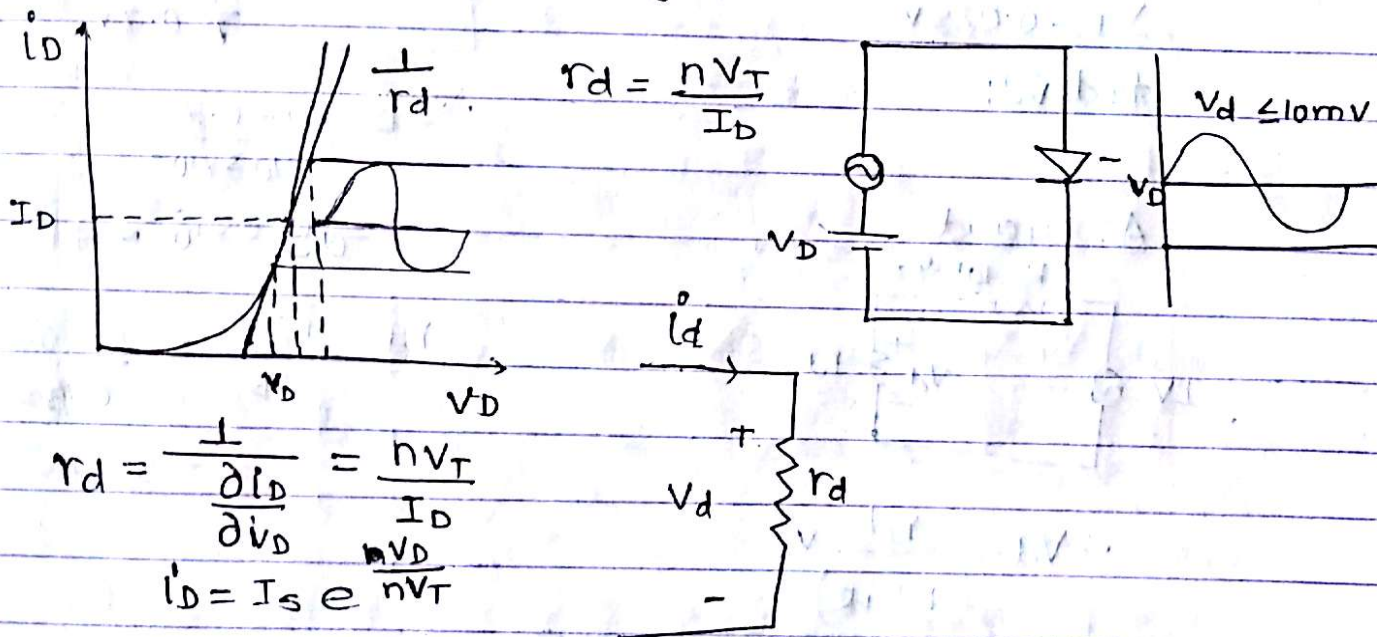 iD
1/rd
rd = nVT/ID
Vd ≤10mV
ID
VD
VD
id
VD
VD
+
rd = 1/(∂iD/∂iVD) = nVT/ID
Vd
rd
iD = Is e^(VD/nVT)
-
-